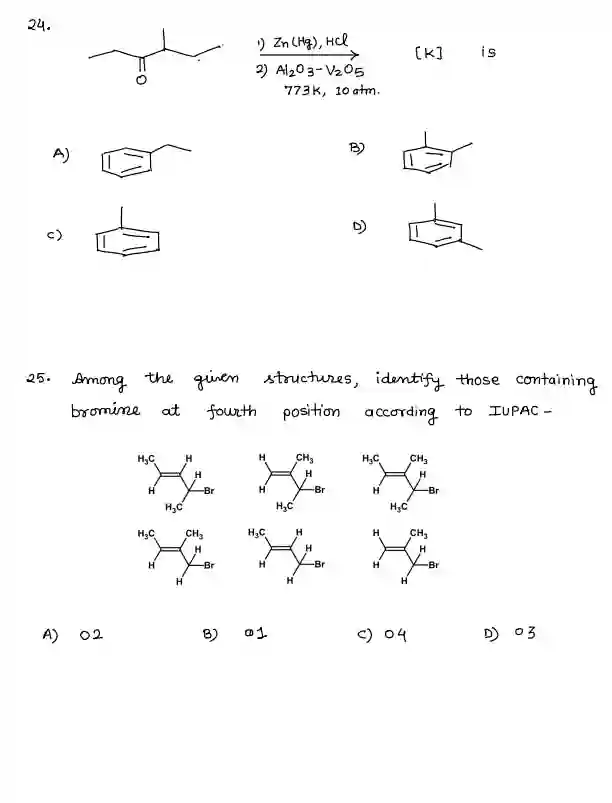 24.
1) Zn(Hg), HCl
[K] is
O
2) Al2O3-V2O5
773K, 10 atm.
A)
B)
C)
D)
25. Among the given structures, identify those containing
bromine at fourth position according to IUPAC -
H3C H H H Br H3C
H CH3 H H Br H3C
H3C CH3 H H Br H3C
H3C CH3 H H Br H
H3C H H H Br H
H CH3 H H Br H
A) 02 B) 01 C) 04 D) 03